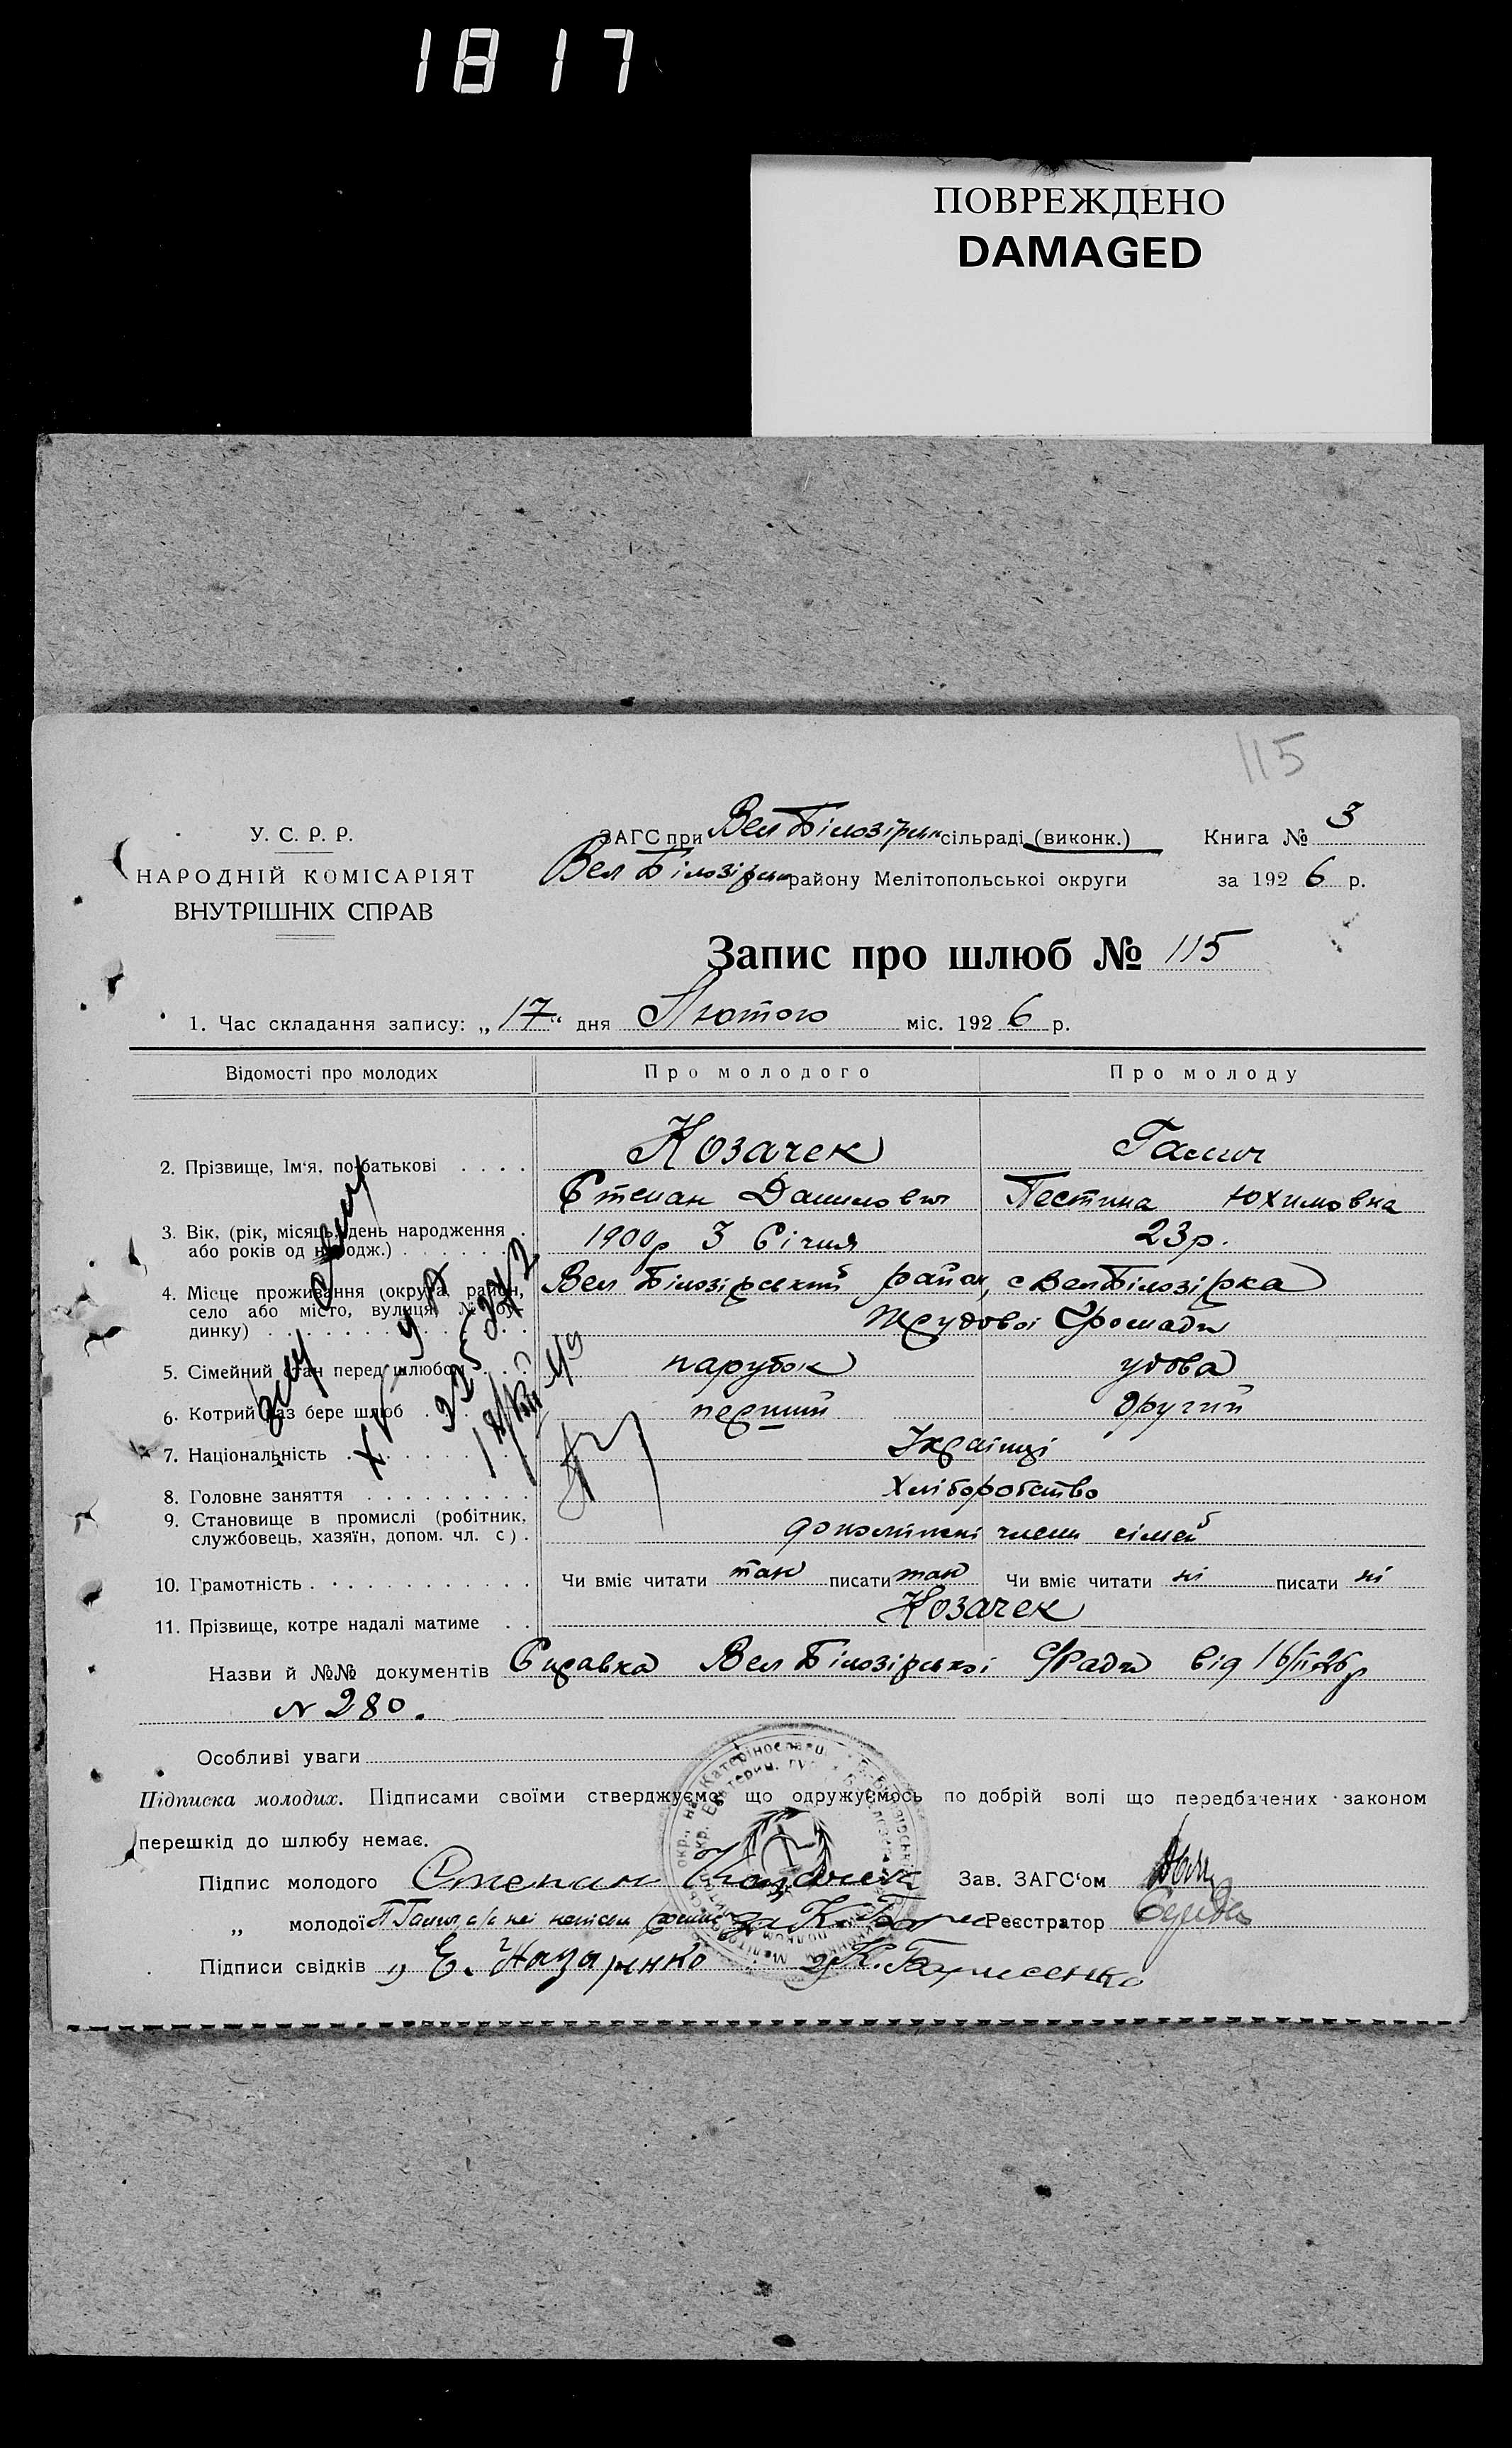 1817
ПОВРЕЖДЕНО
DAMAGED
115
У. С. Р. Р.
НАРОДНІЙ КОМІСАРІЯТ
ВНУТРІШНІХ СПРАВ
ЗАГС при Вел Білозірськ сільраді (виконк.) Книга № 3
Вел Білозірськ району Мелітопольської округи за 1926 р.
Запис про шлюб № 115
1. Час складання запису: „17“ дня Лютого міс. 1926 р.
Відомості про молодих Про молодого Про молоду
2. Прізвище, Ім‘я, по батькові . . . . Козачек Галич
Степан Данилович Пестина Юхимовна
3. Вік, (рік, місяць, день народження . 1900р 3 Січня 23р.
або років од народж.) . . . . . .
4. Місце проживання (округа, район, Вел Білозірський район, с Вел Білозірка
село або місто, вулиця, № бу-
динку) . . . . . . . . . Трудової Громади
5. Сімейний стан перед шлюбом . . . парубок удова
6. Котрий раз бере шлюб . . . перший другий
7. Національність . . . . . . . Українці
8. Головне заняття . . . . . . . . . Хліборобство
9. Становище в промислі (робітник, службовець, хазяїн, допом. чл. с.) . допомічні члени сімей
10. Грамотність . . . . . . . . . . . Чи вміє читати так писати так Чи вміє читати ні писати ні
11. Прізвище, котре надалі матиме . . Козачек
Назви й №№ документів Справка Вел Білозірської С/Ради від 16/II-26р
N 280.
Особливі уваги
Підписка молодих. Підписами своїми стверджуємо, що одружуємось по добрій волі що передбачених законом
перешкід до шлюбу немає.
Підпис молодого Степан Козачек Зав. ЗАГС‘ом
„ молодої П Галич а/а неї напісом К. Бор Реєстратор Середа
Підписи свідків „ Е. Назаренко 2) К. Борисенко